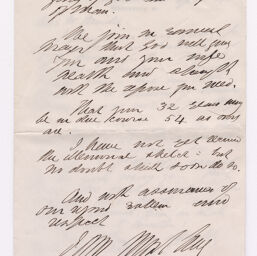 We join in earnest
prayer that God will give
you and your wife
health and strength
with the repose you need.
That your 32 years may
be in due course 54 as ours
are.
I have not yet received
the Memorial sketch: but
no doubt shall soon do so.
And with assurances of
our esteem and
respect